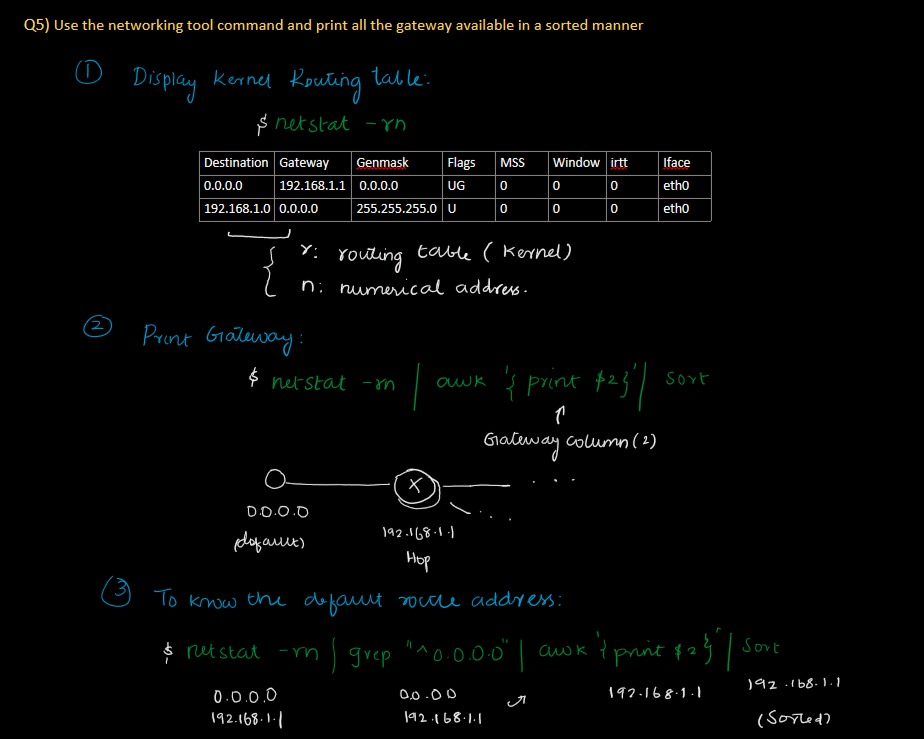 Q5) Use the networking tool command and print all the gateway available in a sorted manner
① Display Kernel Routing table:
$ netstat -rn
Destination Gateway Genmask Flags MSS Window irtt Iface
0.0.0.0 192.168.1.1 0.0.0.0 UG 0 0 0 eth0
192.168.1.0 0.0.0.0 255.255.255.0 U 0 0 0 eth0
r: routing table (Kernel)
n: numerical address.
② Print Gateway:
$ netstat -rn | awk '{ print $2}' | sort
Gateway column (2)
0.0.0.0
(default)
X
192.168.1.1
Hop
③ To know the default route address:
$ netstat -rn | grep "^0.0.0.0" | awk '{print $2}' | sort
0.0.0.0 0.0.0.0 192.168.1.1 192.168.1.1
192.168.1.1 192.168.1.1 (Sorted)